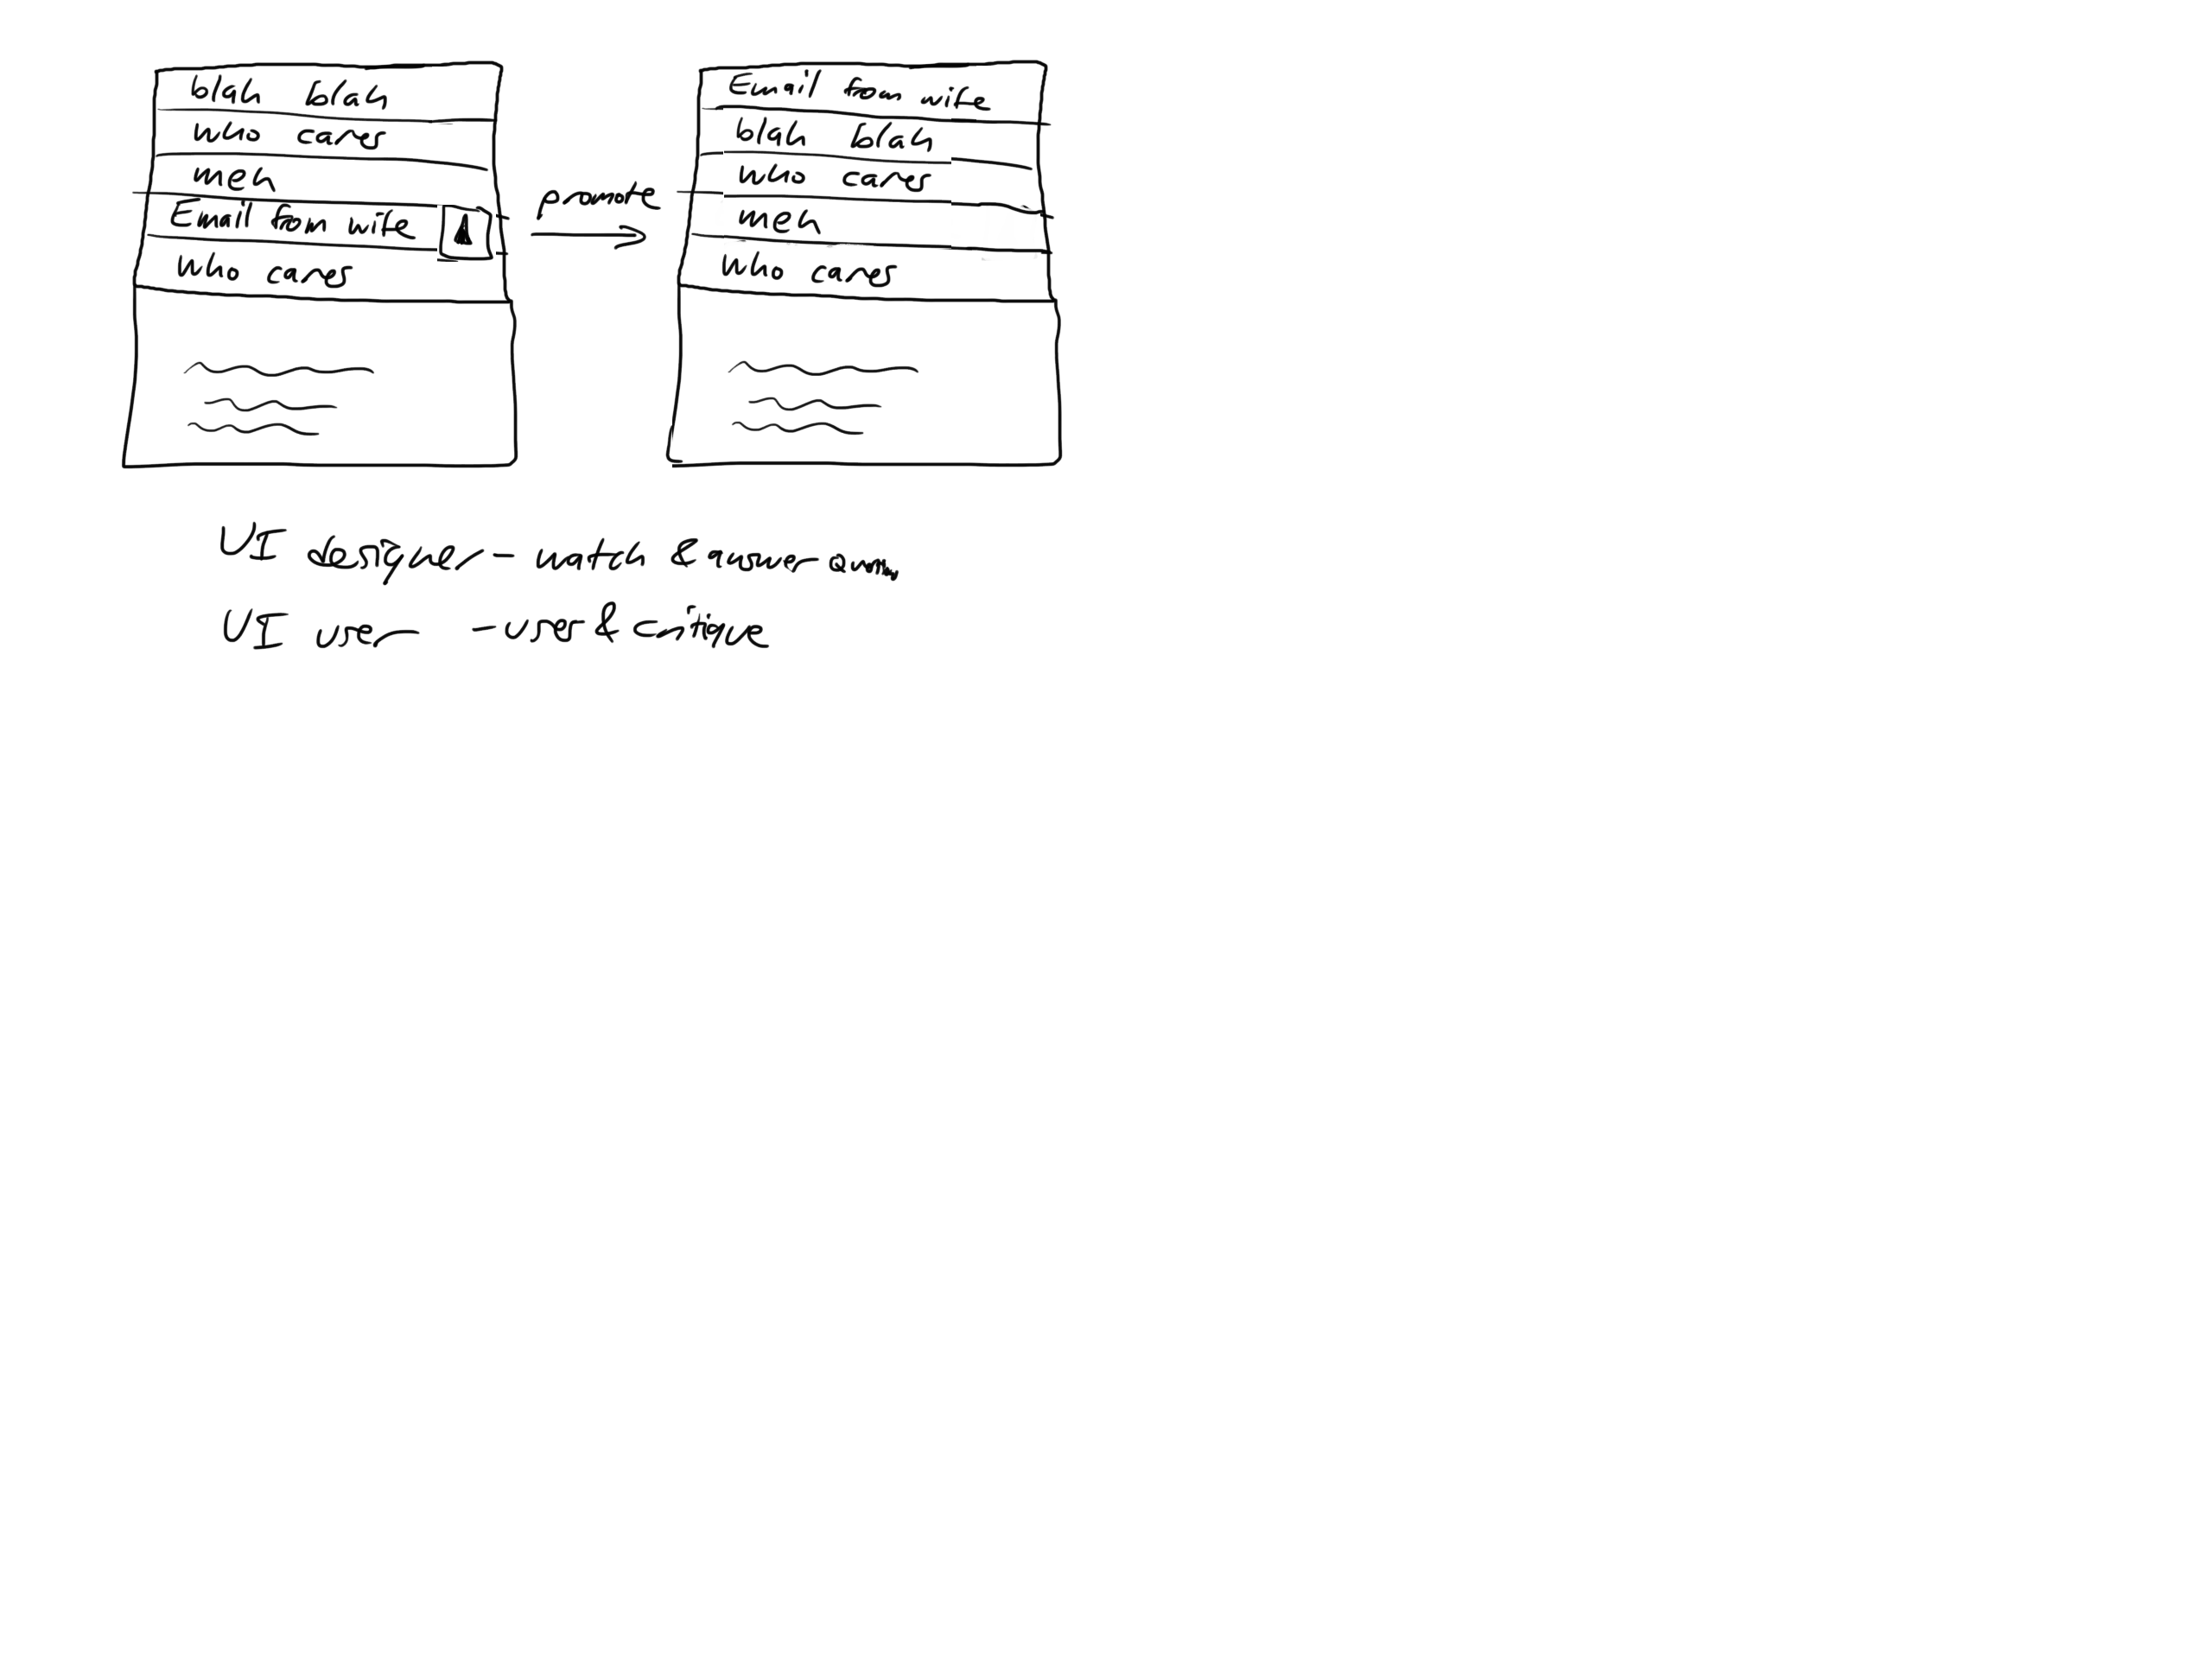 blah blah
who cares
meh
Email from wife
who cares
promote
Email from wife
blah blah
who cares
meh
who cares
UI designer - watch & answer
UI user - user & critique